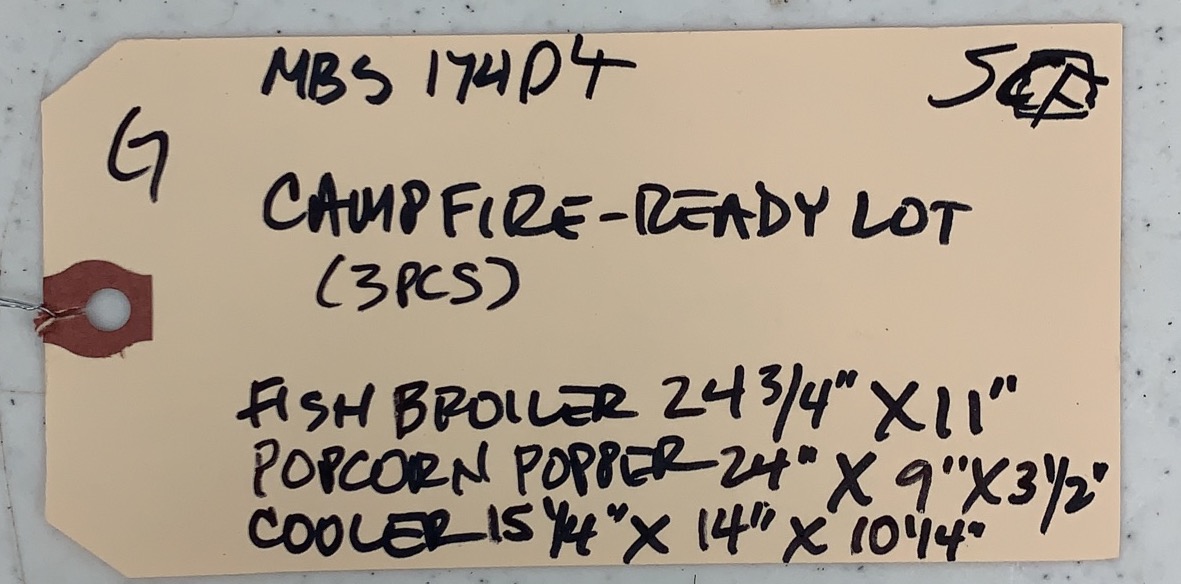 MBS 174D4
G
CAMPFIRE-READY LOT
(3PCS)
FISH BROILER 24 3/4" X 11"
POPCORN POPPER 24" X 9" X 3 1/2"
COOLER 15 1/4" X 14" X 10 1/4"